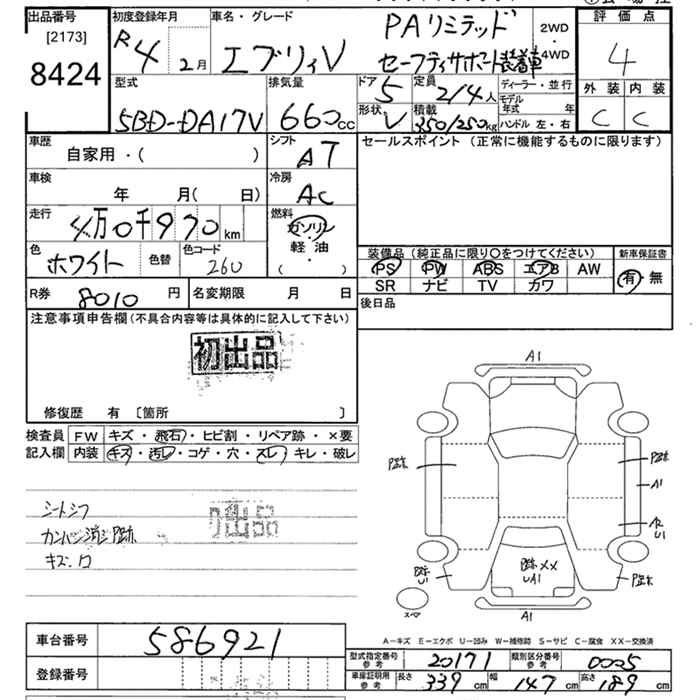 出品番号
[2173]
8424
初度登録年月
R4 2月
車名・グレード
エブリィV
PAリミテッド
セーフティサポート装着車
2WD
4WD
評価点
4
外装 内装
C C
型式
5BD-DA17V
排気量
660cc
ドア
5
定員
2/4人
形状
V
積載
350/250kg
ディーラー・並行
モデル年式 年
ハンドル 左・右
車歴
自家用・( )
シフト
AT
車検
年 月( 日)
冷房
AC
走行
4万0千970km
燃料
ガソリン
軽・油
( )
色
ホワイト
色替
色コード
26U
R券
8010円
名変期限 月 日
セールスポイント (正常に機能するものに限ります)
装備品 (純正品に限り○をつけてください)
新車保証書
PS PW ABS エアB AW
SR ナビ TV カワ
有・無
後日品
注意事項申告欄(不具合内容等は具体的に記入して下さい)
初出品
修復歴 有 〔箇所 〕
検査員
記入欄
FW キズ・飛石・ヒビ割・リペア跡・×要
内装 キズ・汚レ・コゲ・穴・スレ・キレ・破レ
シートシフ
カンバン消シP跡
キズ・ワ
出品
A1
P跡
P跡
A1
A2
U1
P跡
U1
P跡XX
UA1
P跡
スペア
A1
A-キズ E-エクボ U-凹み W-補修跡 S-サビ C-腐食 XX-交換済
車台番号
586921
登録番号
型式指定番号
参考
20171
類別区分番号
参考
0005
車庫証明用
参考
長さ
339cm
幅
147cm
高さ
189cm